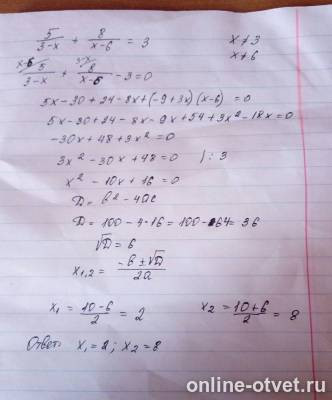 5/(3-x) + 8/(x-6) = 3    x≠3
x≠6
x-6 5/(3-x) + 3-x 8/(x-6) - 3 = 0
5x-30+24-8x+(-9+3x)(x-6) = 0
5x-30+24-8x-9x+54+3x²-18x=0
-30x+48+3x²=0
3x²-30x+48=0   | : 3
x²-10x+16=0
D = b²-4ac
D = 100-4·16 = 100-64 = 36
√D = 6
x₁,₂ = (-b±√D)/2a
x₁ = (10-6)/2 = 2    x₂ = (10+6)/2 = 8
Ответ: x₁=2; x₂=8
online-otvet.ru